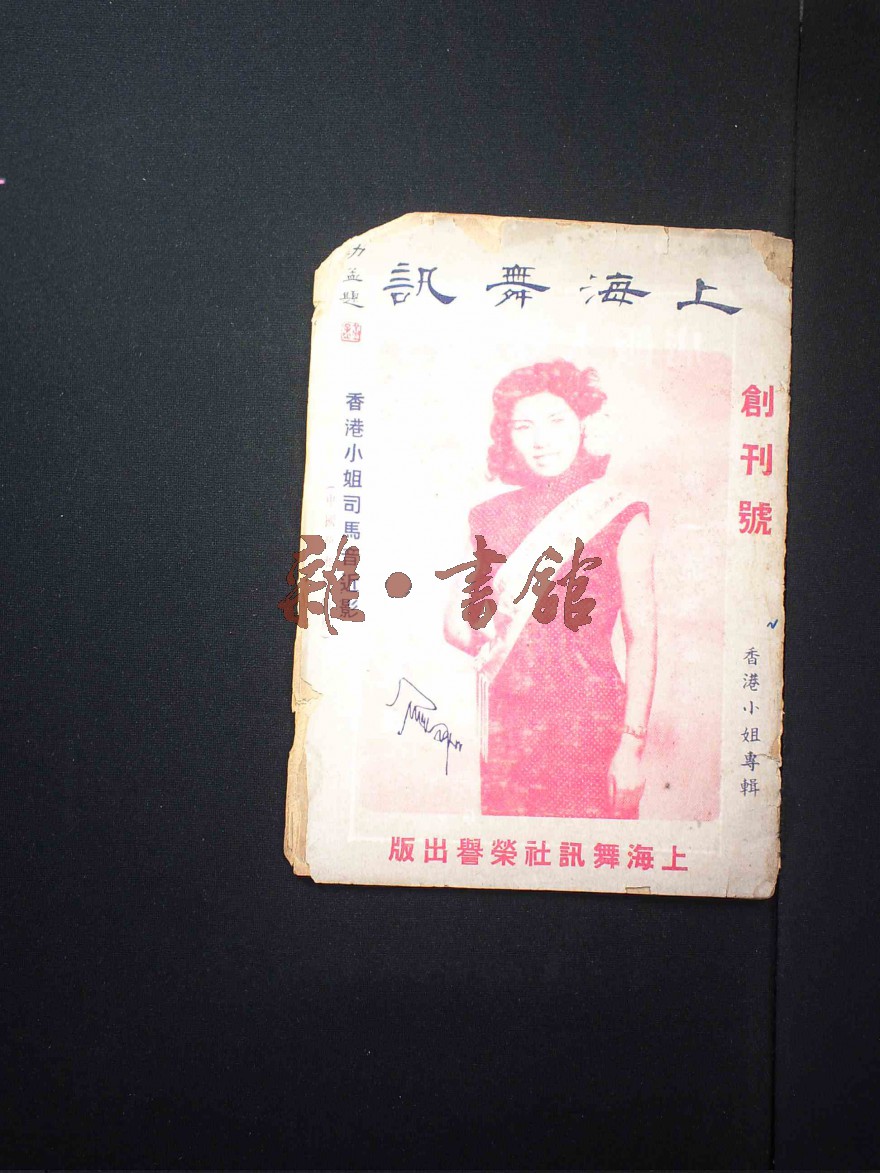 上海舞訊
創刊號
香港小姐專輯
香港小姐司馬音近影
上海舞訊社榮譽出版
雜·書館